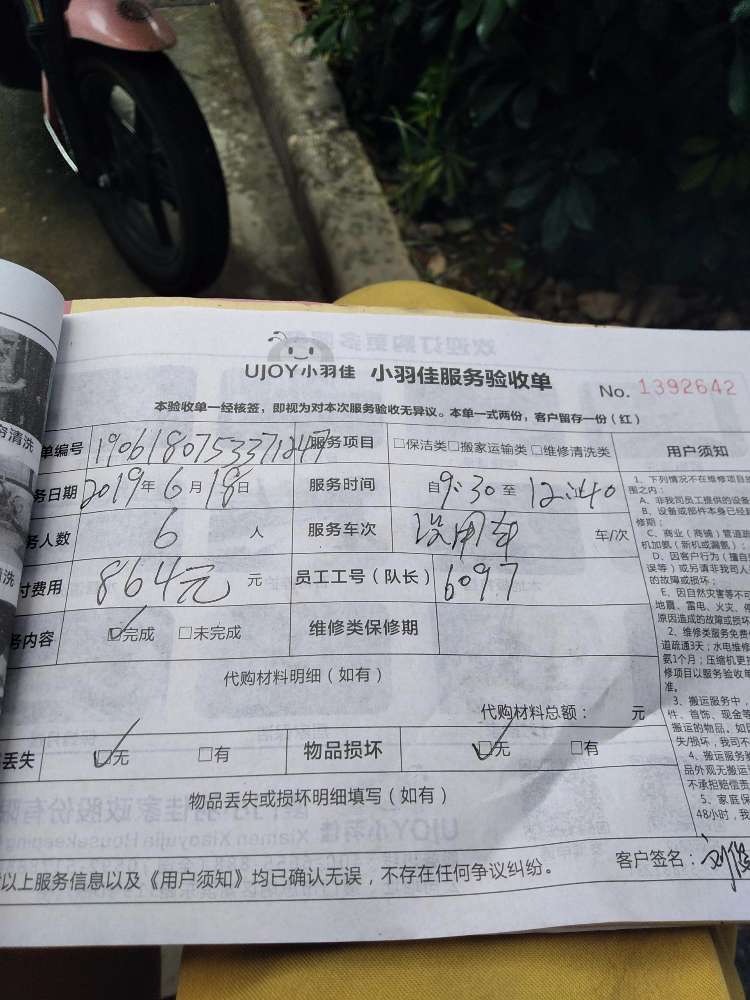 UJOY小羽佳 小羽佳服务验收单 No. 1392642
本验收单一经核签，即视为对本次服务验收无异议。本单一式两份，客户留存一份（红）
单编号 1906180753371247 服务项目 □保洁类□搬家运输类□维修清洗类 用户须知
务日期 2019年6月18日 服务时间 自9:30至12:40
务人数 6 人 服务车次 没用车 车/次
付费用 864元 元 员工工号（队长） 6097
务内容 ☑完成 □未完成 维修类保修期
代购材料明细（如有）
代购材料总额： 元
丢失 ☑无 □有 物品损坏 ☑无 □有
物品丢失或损坏明细填写（如有）
以上服务信息以及《用户须知》均已确认无误，不存在任何争议纠纷。 客户签名：
1、下列情况不在维修项目的
围之内：
A、非我司员工提供的设备
B、设备或部件本身已经超
修期；
C、商业（商铺）管道疏
机加氨（新机或漏氨）；
D、因客户行为（擅自
误等）或另请非我司人
的故障或损坏；
E、因自然灾害等不可
地震、雷电、火灾、停
原因造成的故障或损坏
2、维修类服务免费
道疏通3天；水电维修
氨1个月；压缩机更
修项目以服务验收单
准。
3、搬运服务中，
件、首饰、现金等
搬运的物品。如因
失/损坏，我司不
4、搬运服务验
品外观无搬运
不承担赔偿责
5、家庭保
48小时，我
清洗
清洗